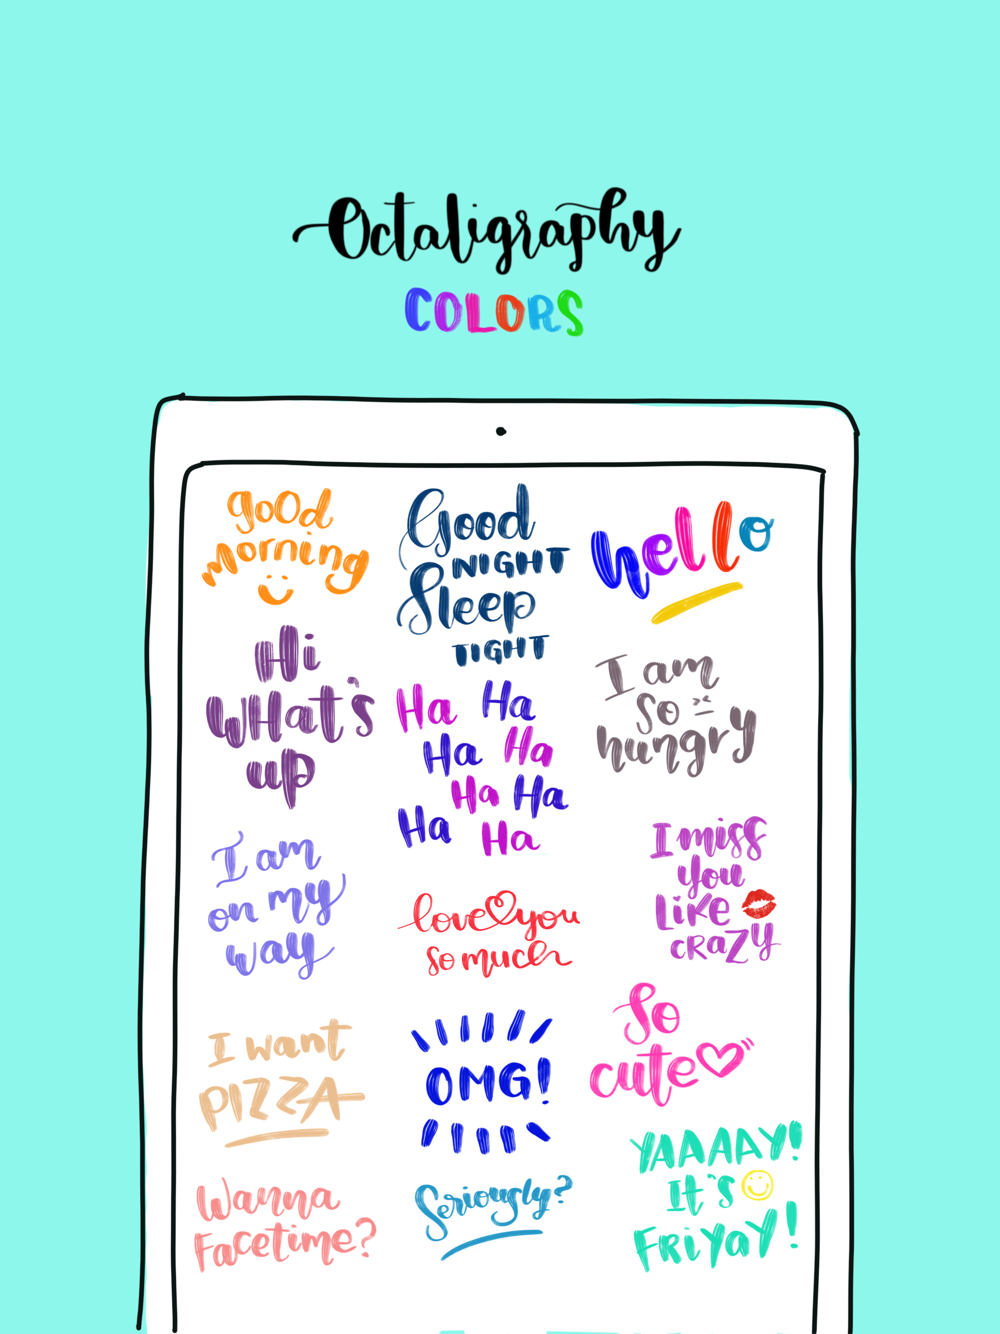 Octaligraphy
COLORS
good
Morning
Good
NIGHT
Sleep
TIGHT
hello
Hi
What's
up
Ha Ha
Ha Ha
Ha Ha
Ha Ha
I am
so
hungry
I am
on my
way
love you
so much
I miss
you
Like
crazy
I want
PIZZA
OMG!
So
cute
Wanna
Facetime?
Seriously?
YAAAAY!
It's
FRiYaY!